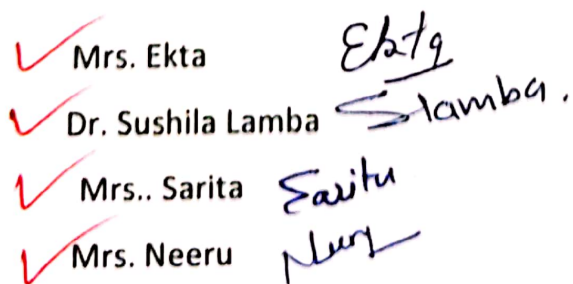 Mrs. Ekta Ekta
Dr. Sushila Lamba Slamba.
Mrs.. Sarita Sarita
Mrs. Neeru